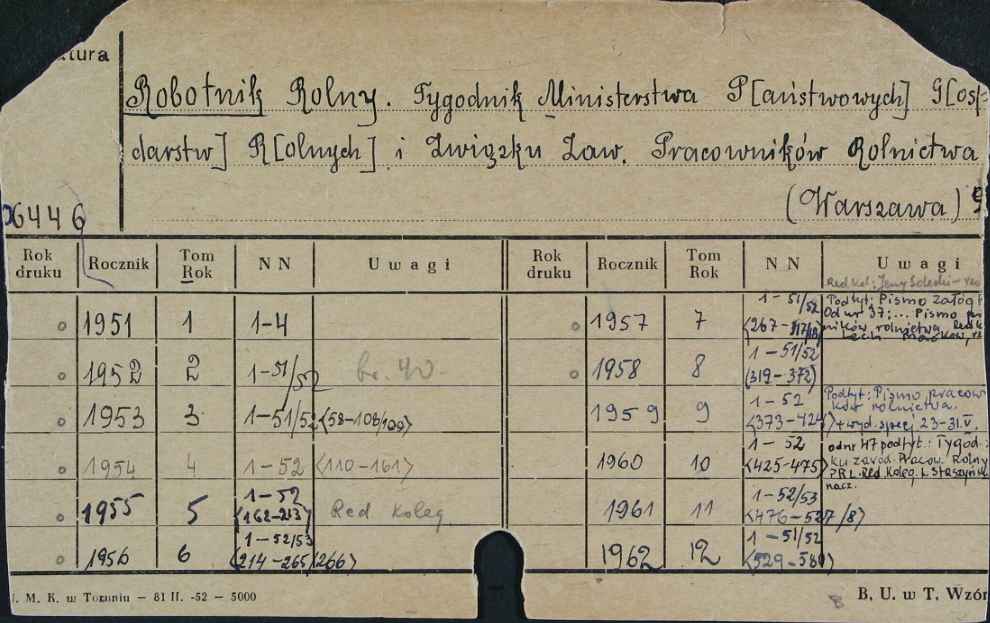 tura
Robotnik Rolny. Tygodnik Ministerstwa P[aństwowych] G[osp-
darstw] R[olnych] i Związku Zaw. Pracowników Rolnictwa
(Warszawa)
06446
Rok druku Rocznik Tom Rok NN Uwagi Rok druku Rocznik Tom Rok NN Uwagi
Red. kol: Jerzy Solecki
o 1951 1 1-4
o 1952 2 1-51/52 br. 40.
o 1953 3 1-51/52 <58-108/109>
o 1954 4 1-52 <110-161>
o 1955 5 1-52 <162-213> Red. Koleg.
o 1956 6 1-52/53 <214-265/266>
o 1957 7 1-51/52 <267- Podtyt: Pismo załogi
Od nr 37: ... Pismo
ników rolnictwa
o 1958 8 1-51/52 <319-372>
1959 9 1-52 <373-424> Podtyt: Pismo pracow
ków rolnictwa.
+ wyd. specj. 23-31.V.
1960 10 1-52 <425-475> od nr 47 podtyt.: Tygod-
ku zawod. Pracow. Rolny
PRL. Red. Koleg. L. Staszyński
nacz.
1961 11 1-52/53 <476-527/8>
1962 12 1-51/52 <529-580>
. M. K. w Toruniu — 81 II. -52 — 5000
B. U. w T. Wzór